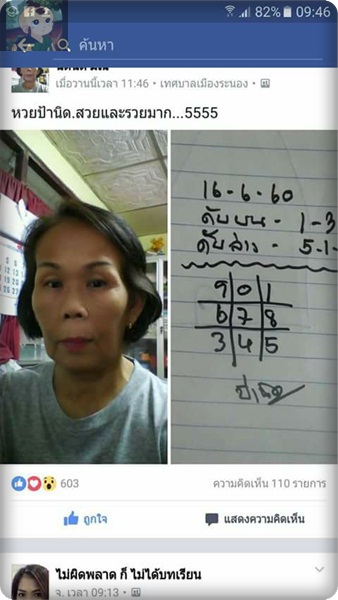 82% 09:46
ค้นหา
เมื่อวานนี้เวลา 11:46 • เทศบาลเมืองระนอง •
หวยป้านิด.สวยและรวยมาก...5555
16-6-60
ดับบน - 1-3
ดับล่าง - 5-1-
9 0 1
6 7 8
3 4 5
ป้านิด
603
ความคิดเห็น 110 รายการ
ถูกใจ
แสดงความคิดเห็น
ไม่ผิดพลาด ก็ ไม่ได้บทเรียน
จ. เวลา 09:13 •